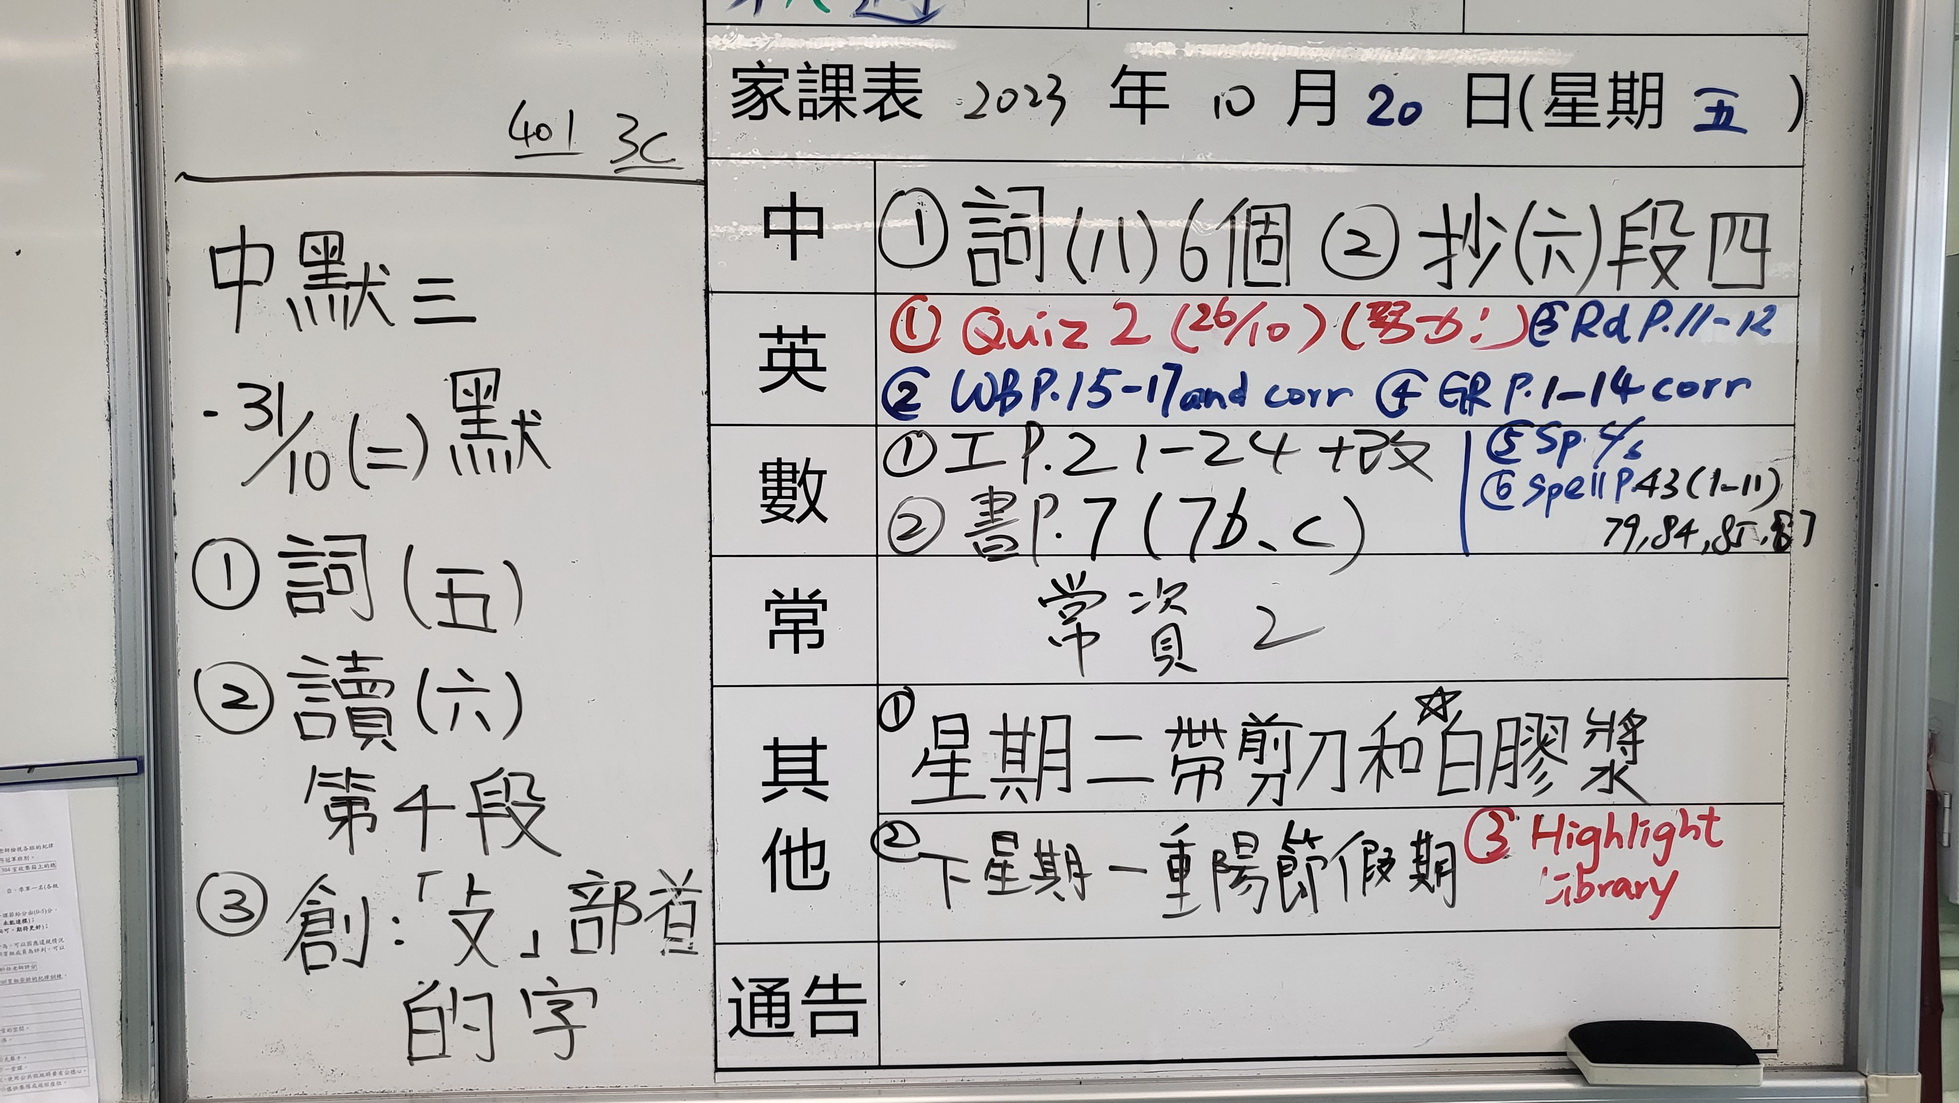 401 3C
中默三
-31/10(二)默
①詞(五)
②讀(六)
第4段
③創:「攴」部首
的字
家課表 2023 年 10 月 20 日(星期 五 )
中 ①詞(八)6個 ②抄(六)段四
英 ①Quiz 2 (26/10) (努力!) ③Rd P.11-12
②WB P.15-17 and corr ④GR P.1-14 corr
⑤Sp.
⑥Spell P.43(1-11)
79,84,85,87
數 ①工P.21-24+改
②書P.7(7b、c)
常 常資2
其他 ①星期二帶剪刀和☆白膠漿
②下星期一重陽節假期 ③Highlight
Library
通告